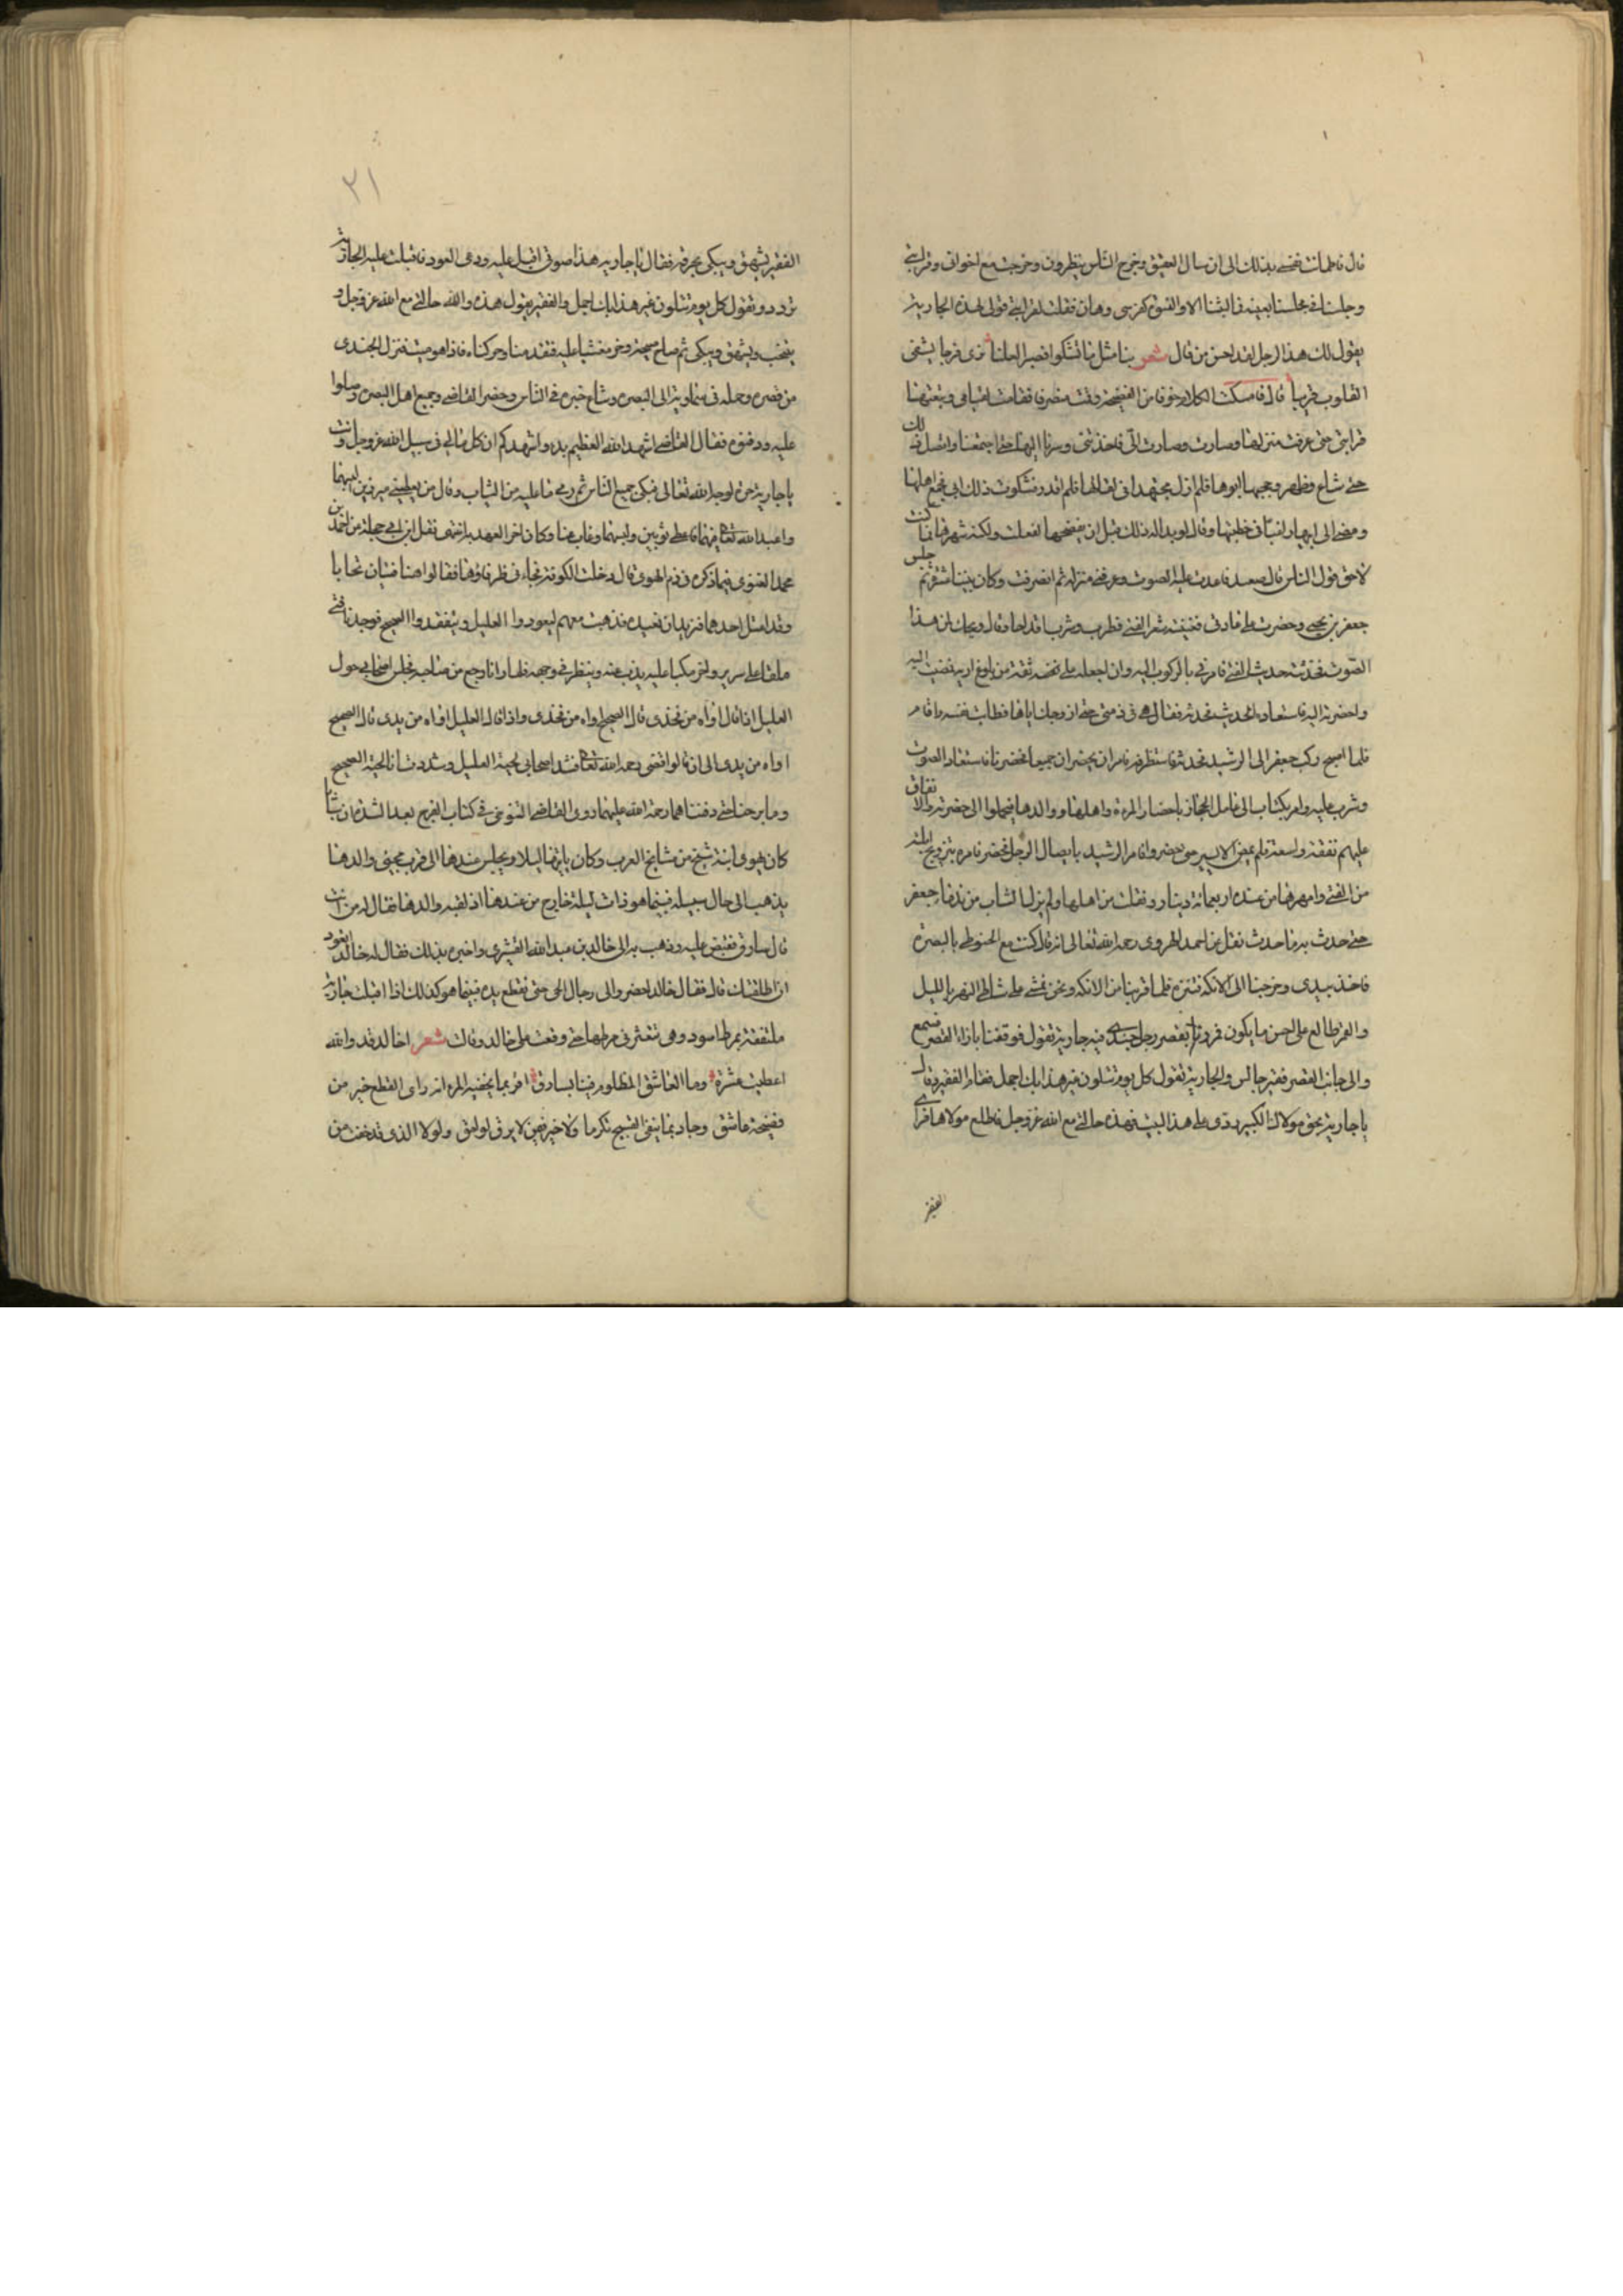 قال فاطمانت نفسى بذلك الى ان سال العقيق وخرج الناس ينظرون وخرجت مع اخوانى وقرابتى
وجلسنا فى مجلسنا بعينه فما لبثنا الا والنسوة كفرسى رهان فقلت لقرابتى قولى لهذه الجارية
يقول لك هذا الرجل لقد احسن من قال شعر بنا مثل ما تشكوا فصبرا لعلنا نرى فرجا يشفى
القلوب قريبا قال فامسكت الكلام خوفا من الفضيحة وقمت منصرفا فقامت لقيامى وتبعتها
قرابتى حتى عرفت منزلها وصارت الى فاخذتنى وسرنا اليها حتى اجتمعنا واتصل ذلك
حتى شاع وظهر وحجبها ابوها فلم ازل مجتهدا فى لقائها فلم اقدر فشكوت ذلك الى ابى فجمع اهلنا
ومضى الى ابيها راغبا فى خطبتها وقال لو بدا له ذلك قبل ان يفضحها لفعلت ولكنه شهرها فما كنت
لاحقق قول الناس قال معبد فاعدت عليه الصوت وعرفنى منزله ثم انصرفت وكان بيننا عشرة ثم جلس
جعفر بن يحيى وحضرت على عادتى فغنيته شعر الفتى فطرب وشرب اقداحا وقال ويحك لمن هذا
الصوت فحدثته حديث الفتى فامرنى بالركوب اليه وان اجعله على ثقة من بلوغ اربه فمضيت اليه
واحضرته اليه فاستعاده الحديث فحدثه فقال هى فى ذمتى حتى ازوجك اياها فطابت نفسه واقام
فلما اصبح ركب جعفر الى الرشيد فحدثه فاستظرفه فامر ان يحضران جميعا فحضرنا فاستعاد الصوت
وشرب عليه وامر بكتاب الى عامل الحجاز باحضار المرءة واهلها ووالدها فحملوا الى حضرته والانفاق
عليهم نفقة واسعة فلم يمض الا يسير حتى حضروا فامر الرشيد بايصال الرجل فحضر فامره بتزويج ابنته
من الفتى وامهرها من عنده اربعمائة دينار ونقلت من اهلها ولم يزل الشاب من ندماء جعفر
حتى حدث به ما حدث نقل عن احمد الهروى رحمه الله تعالى انه قال كنت مع الحنوطى بالبصرة
فاخذ بيدى وخرجنا الى الابكه نتنزه فلما قربنا من الابكه ونحن نمشى على شاطى النهر بالليل
والقمر طالع على احسن ما يكون فمررنا بقصر رجل جندى فيه جارية تقول فوقفنا بازاء القصر نسمع
والى جانب القصر فقير جالس والجارية تقول كل يوم تتلون غير هذا بك اجمل فقام الفقير وقال
يا جارية بحق مولاك الكبير ردى على هذا البيت فهذه حالتى مع الله عز وجل فاطلع مولاها فراى
الفقير
٢١
الفقير يشهق ويبكى بحرقة فقال يا جارية هذا صوفى اقبل عليه ودعى العود فاقبلت عليه الجارية
تردد وتقول كل يوم تتلون غير هذا بك اجمل والفقير يقول هذه والله حالتى مع الله عز وجل و
ينتحب ويشهق ويبكى ثم صاح صيحة وخر مغشيا عليه فقدمنا وحركناه فاذا هو ميت فنزل الجندى
من قصره وحمله فى سماوية الى البصرة وشاع خبره فى الناس وحضر القاضى وجميع اهل البصرة وصلوا
عليه ودفنوه فقال القاضى اشهد الله العظيم بده واشهدكم ان كل مالى فى سبيل الله عز وجل وانت
يا جارية حرة لوجه الله تعالى فبكى جميع الناس ثم رمى ما عليه من الثياب وقال من يعطينى ميزرين البسهما
واعبد الله تعالى فيهما فاعطى ثوبين ولبسهما وغاب عنا وكان اخر العهد به انتهى نقل ابن ابى حجلة من احمد بن
محمد الغنوى فيما ذكره فى ذم الهوى قال دخلت الكوفة فجاءنى ظرفاؤها فقالوا هنا فتيان تحابا
وقد اعتل احدهما فنريد ان نعيده فذهبت معهم ليعودوا العليل ويتفقدوا الصحيح فوجدنا فتى
ملقا على سرير واخر مكبا عليه يذب عنه وينظر فى وجهه فلم ار انا وجع من صاحبه فجلس اصحابى حول
العليل اذا قال اواه من فخذى قال الصحيح اواه من فخذى واذا قال العليل اواه من يدى قال الصحيح
اواه من يدى الى ان قالوا قضى رحمه الله تعالى فشد اصحابى لحية العليل وشددت انا لحية الصحيح
وما برحنا حتى دفناهما رحمة الله عليهما روى القاضى التنوخى فى كتاب الفرج بعد الشدة ان شابا
كان يهوى ابنة شيخ من مشايخ العرب وكان ياتيها ليلا ويجلس عندها الى قرب مجيئ والدها
يذهب الى حال سبيله فبينما هو ذات ليلة خارج من عندها اذ لقيه والدها فقال له من انت
قال سارق فقبض عليه وذهب به الى خالد بن عبد الله القشرى واخبره بذلك فقال له خالد اتعود
ان اطلقتك قال فقال خالد احضروا الى رجال الحى حتى نقطع يده فبينما هو كذلك اذا اقبلت جارية
ملتفقة بمرط اسود وهى تتعثر فى مرطها حتى وقفت على خالد وقالت شعر اخالد قد والله
اعطيت عشرة وما العاشق المظلوم فينا بسارق اقر بما يخفيه المرء انه راى القطع خير من
فضيحة عاشق وجاد بما يتقى القبيح تكرما ولا خير فيمن لا يرق لوامق ولولا الذى قد خفت من